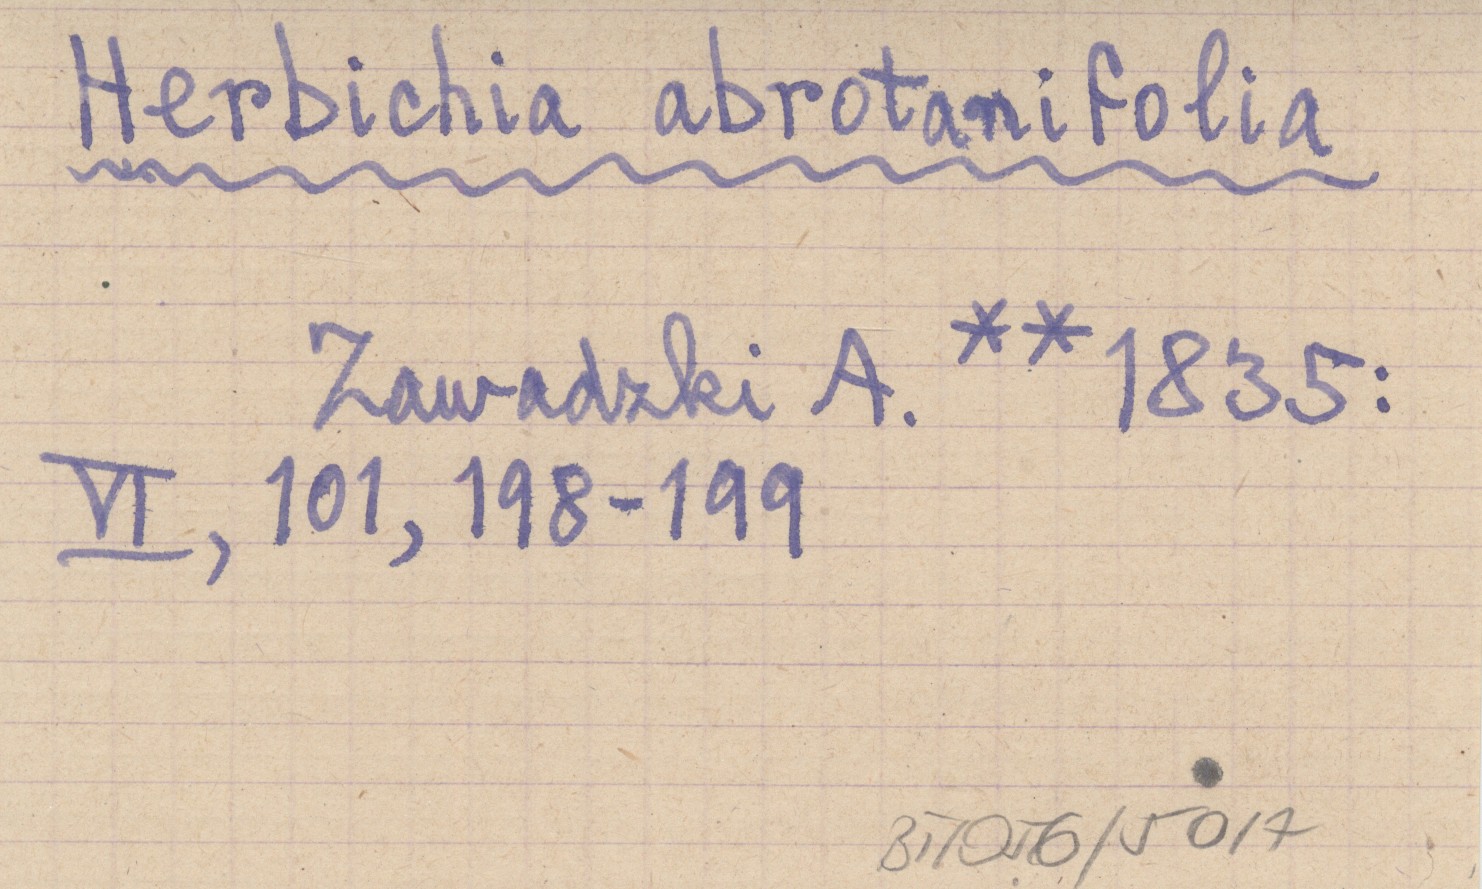 Herbichia abrotanifolia
Zawadzki A. **1835:
VI, 101, 198-199